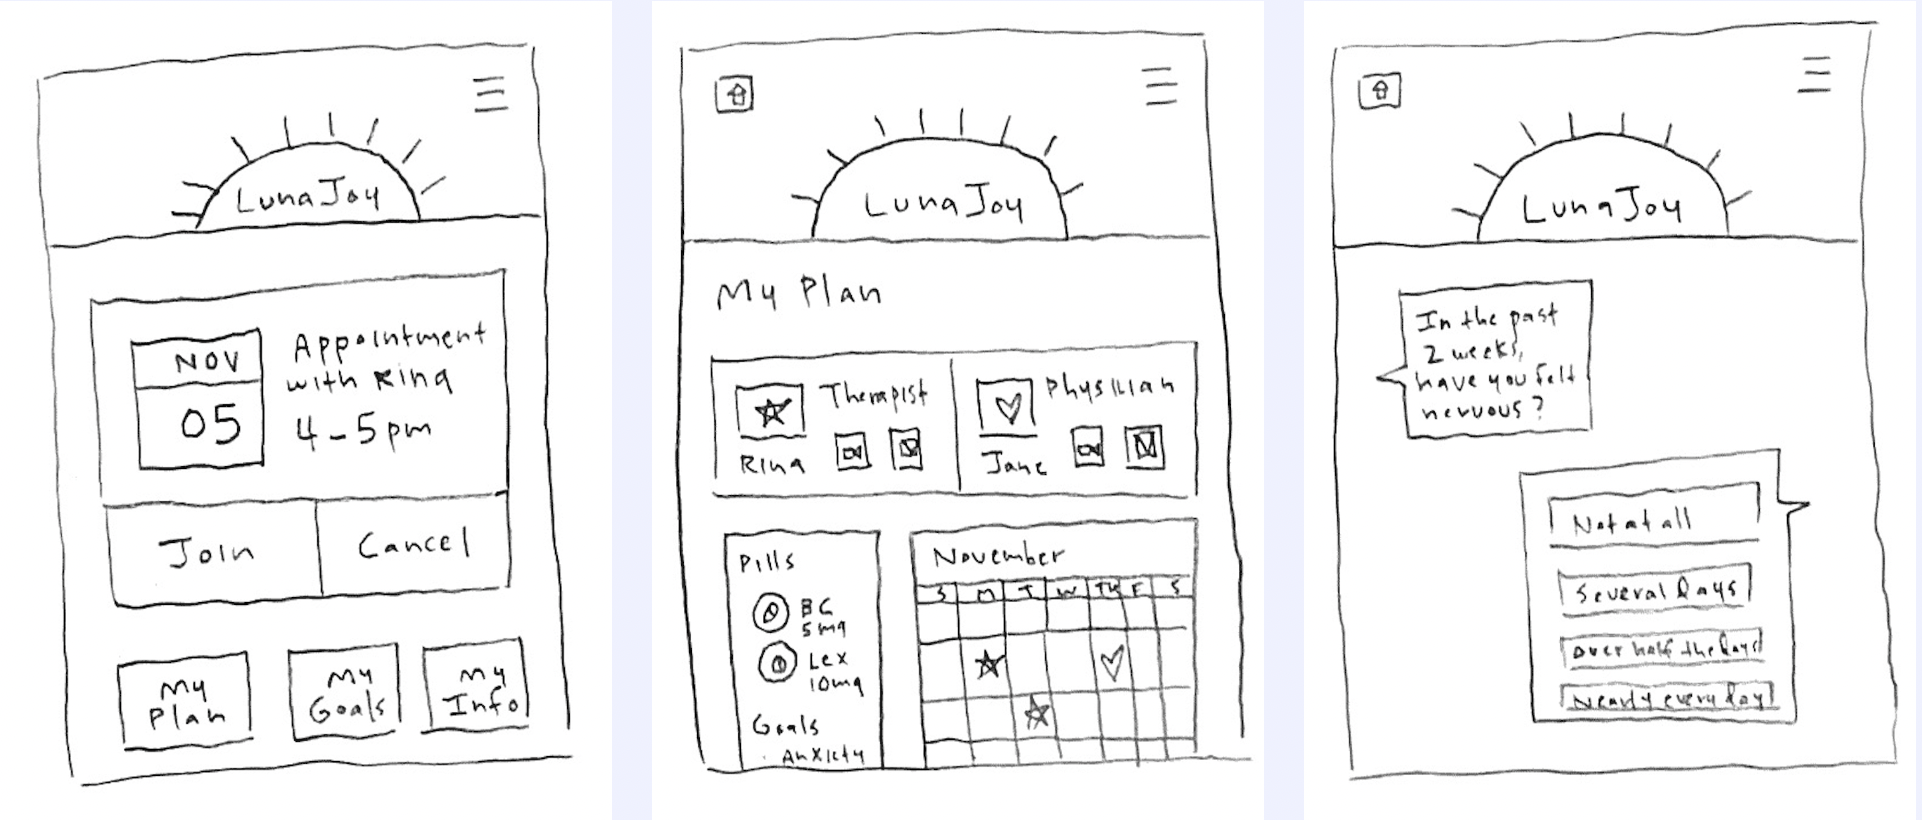 LunaJoy
NOV
05
Appointment
with Rina
4-5pm
Join
Cancel
My
Plan
My
Goals
My
Info
LunaJoy
My Plan
Therapist
Rina
Physician
Jane
Pills
BC
5mg
Lex
10mg
Goals
· Anxiety
November
S M T W TH F S
LunaJoy
In the past
2 weeks,
have you felt
nervous?
Not at all
Several days
over half the days
Nearly every day